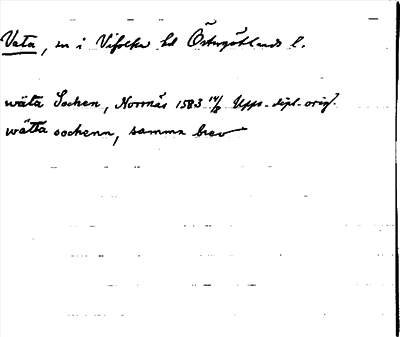 Väta, sn i Vifolka hd Östergötlands l.
wäta Sochen, Norrnäs 1583 14/8 Upps. dipl. orig.
wätta sochenn, samma brev